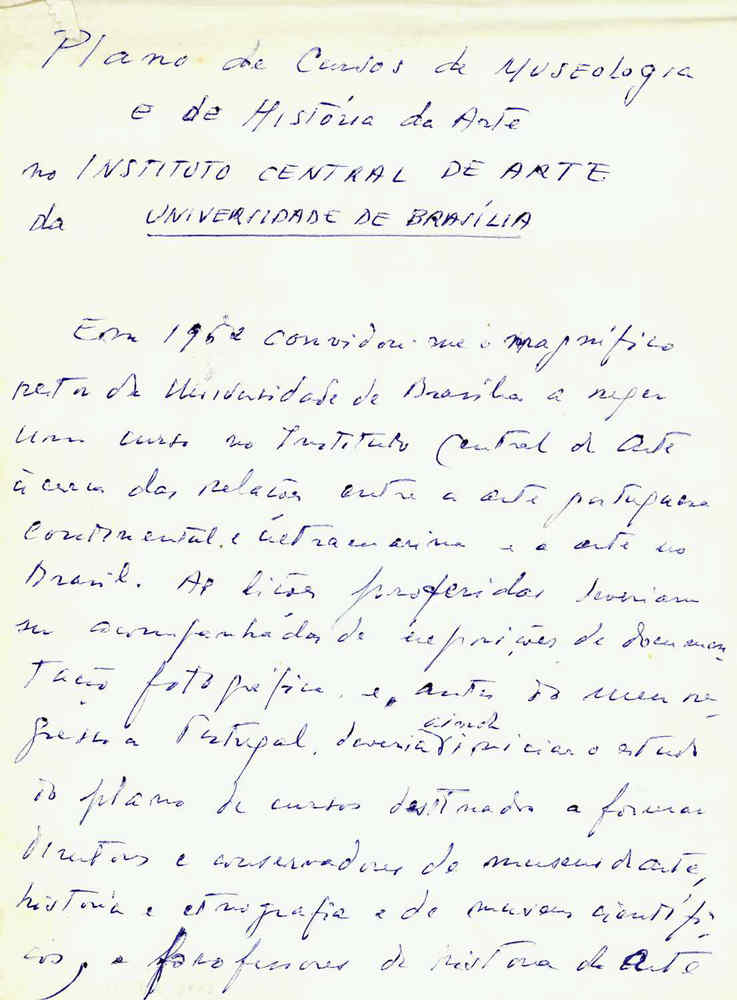 Plano de Cursos de Museologia
e de História da Arte
no INSTITUTO CENTRAL DE ARTE
da UNIVERSIDADE DE BRASÍLIA
Em 1962 convidou-me o magnífico
reitor da Universidade de Brasília a reger
um curso no Instituto Central de Arte
àcerca das relações entre a arte portuguesa
continental e ultramarina e a arte no
Brasil. As lições proferidas deveriam
ser acompanhadas de exposições de documen-
tação fotográfica e, antes do meu re-
gresso a Portugal, deveria ainda iniciar o estudo
do plano de cursos destinados a formar
directores e conservadores de museus de arte,
história e etnografia e de museus científi-
cos, e professores de história da arte